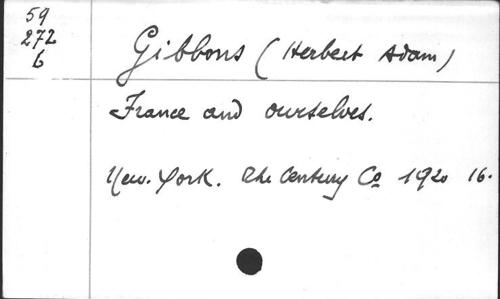 59
272
6
Gibbons (Herbert Adam)
France and ourselves.
New-York. The Century Co 1920 16.